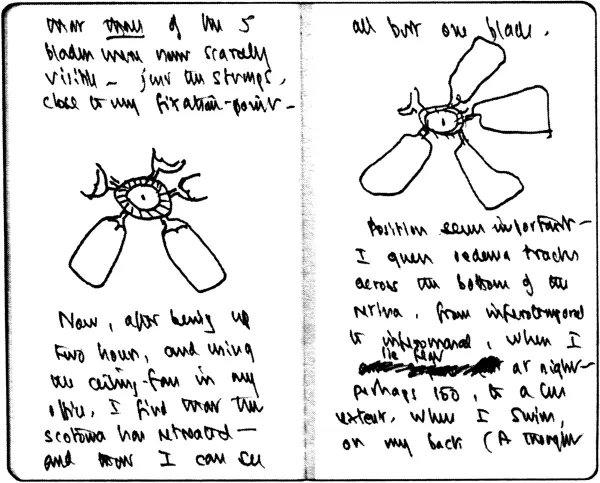 that three of the 5
blades were now scarcely
visible – just the stumps,
close to my fixation-point –
Now, after being up
two hours, and using
the ceiling-fan in my
office, I find that the
scotoma has retreated –
and now I can see
all but one blade.
Position seems important –
I guess oedema tracks
across the bottom of the
retina, from inferotemporal
to inferonasal, when I
lie flat
at night –
perhaps too, to a less
extent, when I swim,
on my back (A thought